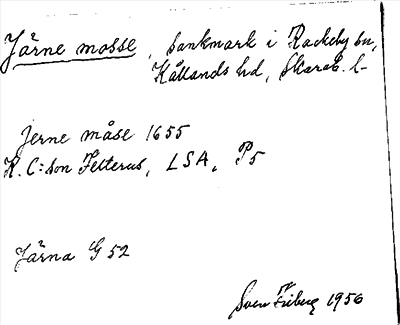 Järne mosse, sankmark i Rackeby sn,
Kållands hd, Skarab. l.
Jerne måse 1655
K. C:son Felterus, LSA, P5
Järna G 52
Sven Friberg 1956